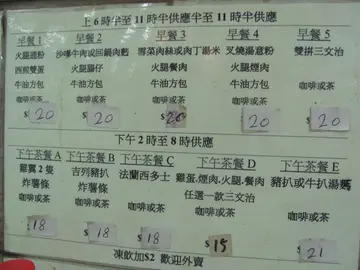 上6時半至11時半供應半至11時半供應
早餐1 早餐2 早餐3 早餐4 早餐5
火腿通粉 沙嗲牛肉或回鍋肉麪 雪菜肉絲或肉丁湯米 叉燒湯意粉 雙拼三文治
西煎雙蛋 火腿腸仔 火腿餐肉 火腿煙肉
牛油方包 牛油方包 牛油方包 牛油方包
咖啡或茶 咖啡或茶 咖啡或茶 咖啡或茶 咖啡或茶
$20 $20 $20 $20 $20
下午2時至8時供應
下午茶餐A 下午茶餐B 下午茶餐C 下午茶餐D 下午茶餐E
雞翼2隻 吉列豬扒 法蘭西多士 雞蛋.煙肉.火腿.餐肉 豬扒或牛扒湯麪
炸薯條 炸薯條 任選一款三文治
咖啡或茶 咖啡或茶 咖啡或茶 咖啡或茶 咖啡或茶
$18 $18 $18 $15 $21
凍飲加$2 歡迎外賣